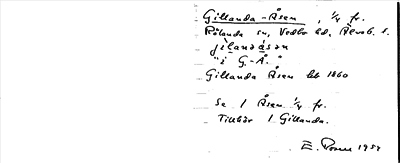 Gillanda-Åsen, 1/4 fr.
Rölanda sn, Vedbo hd, Älvsb. l.
jìlandåsən
"i G.-Å."
Gillanda Åsen lht 1860
Se 1 Åsen 1/4 fr.
Tillhör 1 Gillanda.
E. 1957